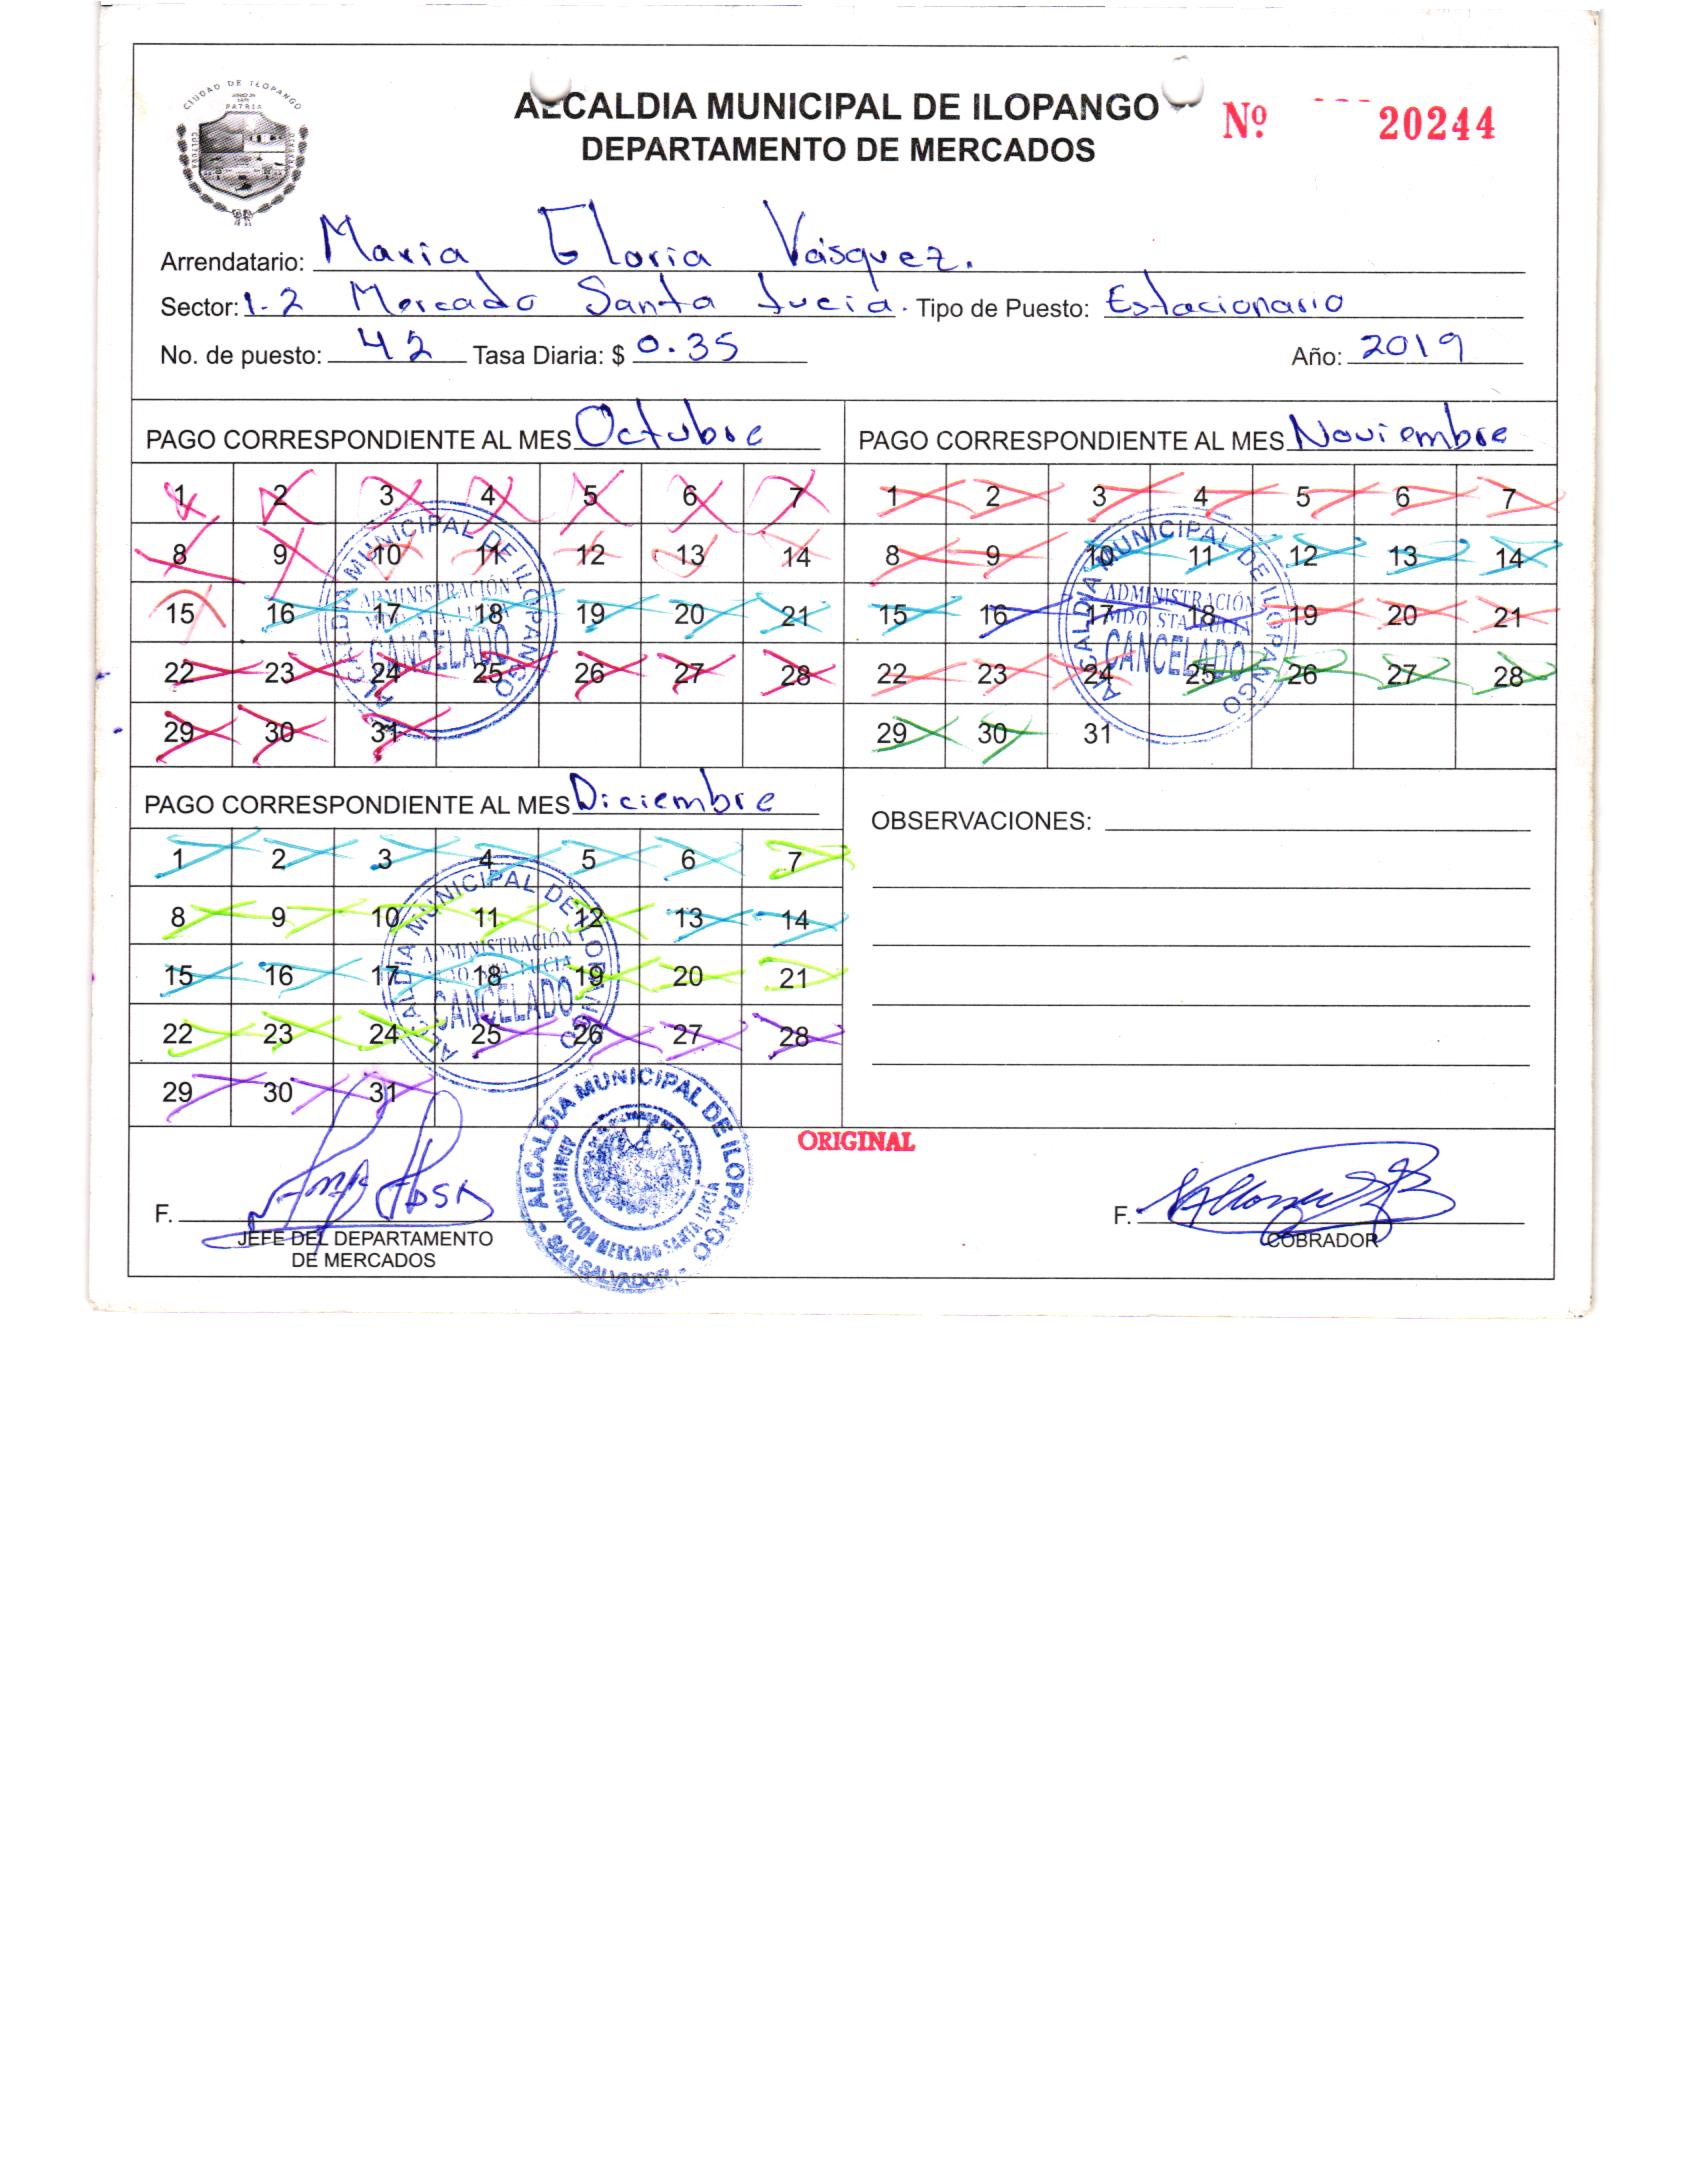 CIUDAD DE ILOPANGO
PATRIA
CULTURA
ALCALDIA MUNICIPAL DE ILOPANGO
DEPARTAMENTO DE MERCADOS
Nº 20244
Arrendatario: Maria Gloria Vásquez.
Sector: 1-2 Mercado Santa Lucia. Tipo de Puesto: Estacionario
No. de puesto: 42 Tasa Diaria: $ 0.35 Año: 2019
PAGO CORRESPONDIENTE AL MES Octubre
1 2 3 4 5 6 7
8 9 10 11 12 13 14
15 16 17 18 19 20 21
22 23 24 25 26 27 28
29 30 31
ALCALDIA MUNICIPAL DE ILOPANGO
ADMINISTRACIÓN
MDO. STA. LUCIA
CANCELADO
PAGO CORRESPONDIENTE AL MES Noviembre
1 2 3 4 5 6 7
8 9 10 11 12 13 14
15 16 17 18 19 20 21
22 23 24 25 26 27 28
29 30 31
ALCALDIA MUNICIPAL DE ILOPANGO
ADMINISTRACIÓN
MDO. STA. LUCIA
CANCELADO
PAGO CORRESPONDIENTE AL MES Diciembre
1 2 3 4 5 6 7
8 9 10 11 12 13 14
15 16 17 18 19 20 21
22 23 24 25 26 27 28
29 30 31
ALCALDIA MUNICIPAL DE ILOPANGO
ADMINISTRACIÓN
MDO. STA. LUCIA
CANCELADO
OBSERVACIONES:
ORIGINAL
F.
JEFE DEL DEPARTAMENTO
DE MERCADOS
ALCALDIA MUNICIPAL DE ILOPANGO
ADMINISTRACION MERCADO SANTA LUCIA
SAN SALVADOR
F.
COBRADOR